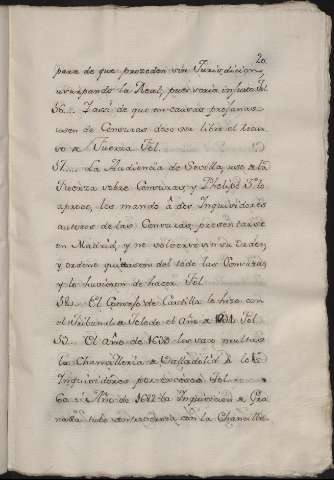 20
pena de que proceden sin Jurisdicion,
usurpando la Real, pues seria injusto fol.
56.... Zassi de que en causas profanas
usen de Censuras dese ser libre el recur
so a Fuerza Fol.
57.... La Audiencia de Sevilla, uso a la
Fuerza sobre Censuras, y Phelipe 3º lo
aprovo, los mandò à dos Inquisidores
autores de las Censuras, presentarse
en Madrid, y no volverse sin su orden,
y ordenò quitasen del todo las Censuras,
y lo hicieron de hacer Fol.
58... El Consejo de Castilla lo hizo con
el tribunal de toledo el Año de Fol.
59... El año de 1630 les saco multas
la Chancilleria de Valladolid à los
Inquisidores por excesos Fol.
60 el Año de 1622 la Inquisicion de Gra
nada tubo controversia con la Chancille